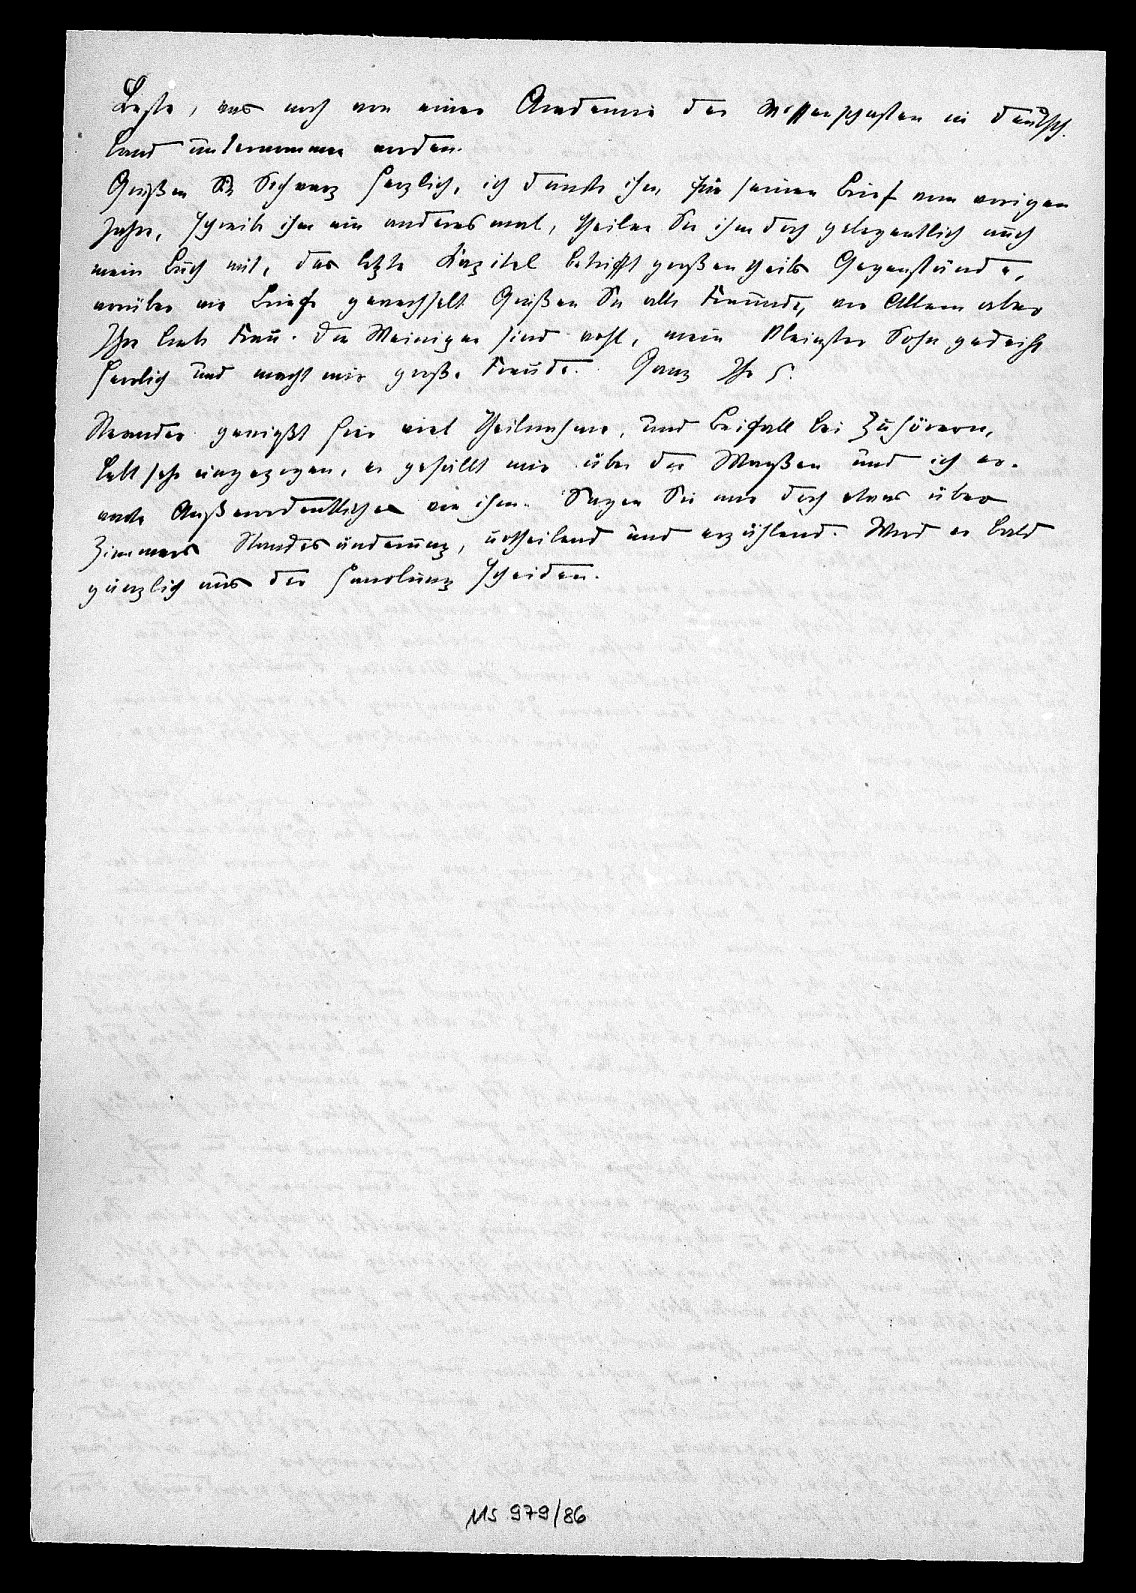 Beste, was noch von einer Academie der Wissenschaften in Deutsch-
land unternommen worden.
Grüßen Sie Schwarz herzlich, ich danke ihm für seinen Brief vom vorigen
Jahre, schreibe ihm ein anderes mal, theilen Sie ihm doch gelegentlich auch
mein Buch mit, das letzte Kapitel betrifft großentheils Gegenstände,
worüber wir Briefe gewechselt Grüßen Sie alle Freunde, vor Allem aber
Ihre liebe Frau. Die Meinigen sind wohl, mein kleinster Sohn gedeiht
herrlich und macht mir große Freude. Ganz Ihr S.
Neander genießt hier viel Theilnahme, und Beifall bei Zuhörern,
lebt sehr eingezogen, er gefällt mir über die Maaßen und ich er-
warte Außerordentliches von ihm. Sagen Sie mir doch etwas über
Zimmers Standesänderung, urtheilend und erzählend. Wird er bald
gänzlich aus der Handlung scheiden.
Ms 979/86